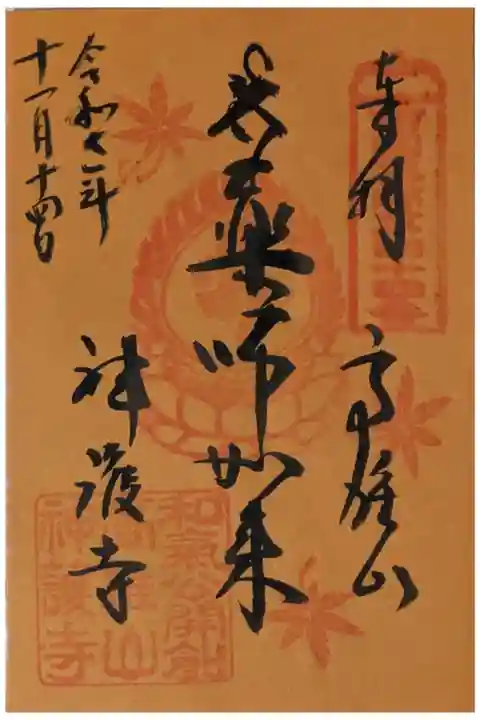 奉拝 高雄山
薬師如来
神護寺
令和七年
十一月十四日
和気公開創
高雄山
神護寺